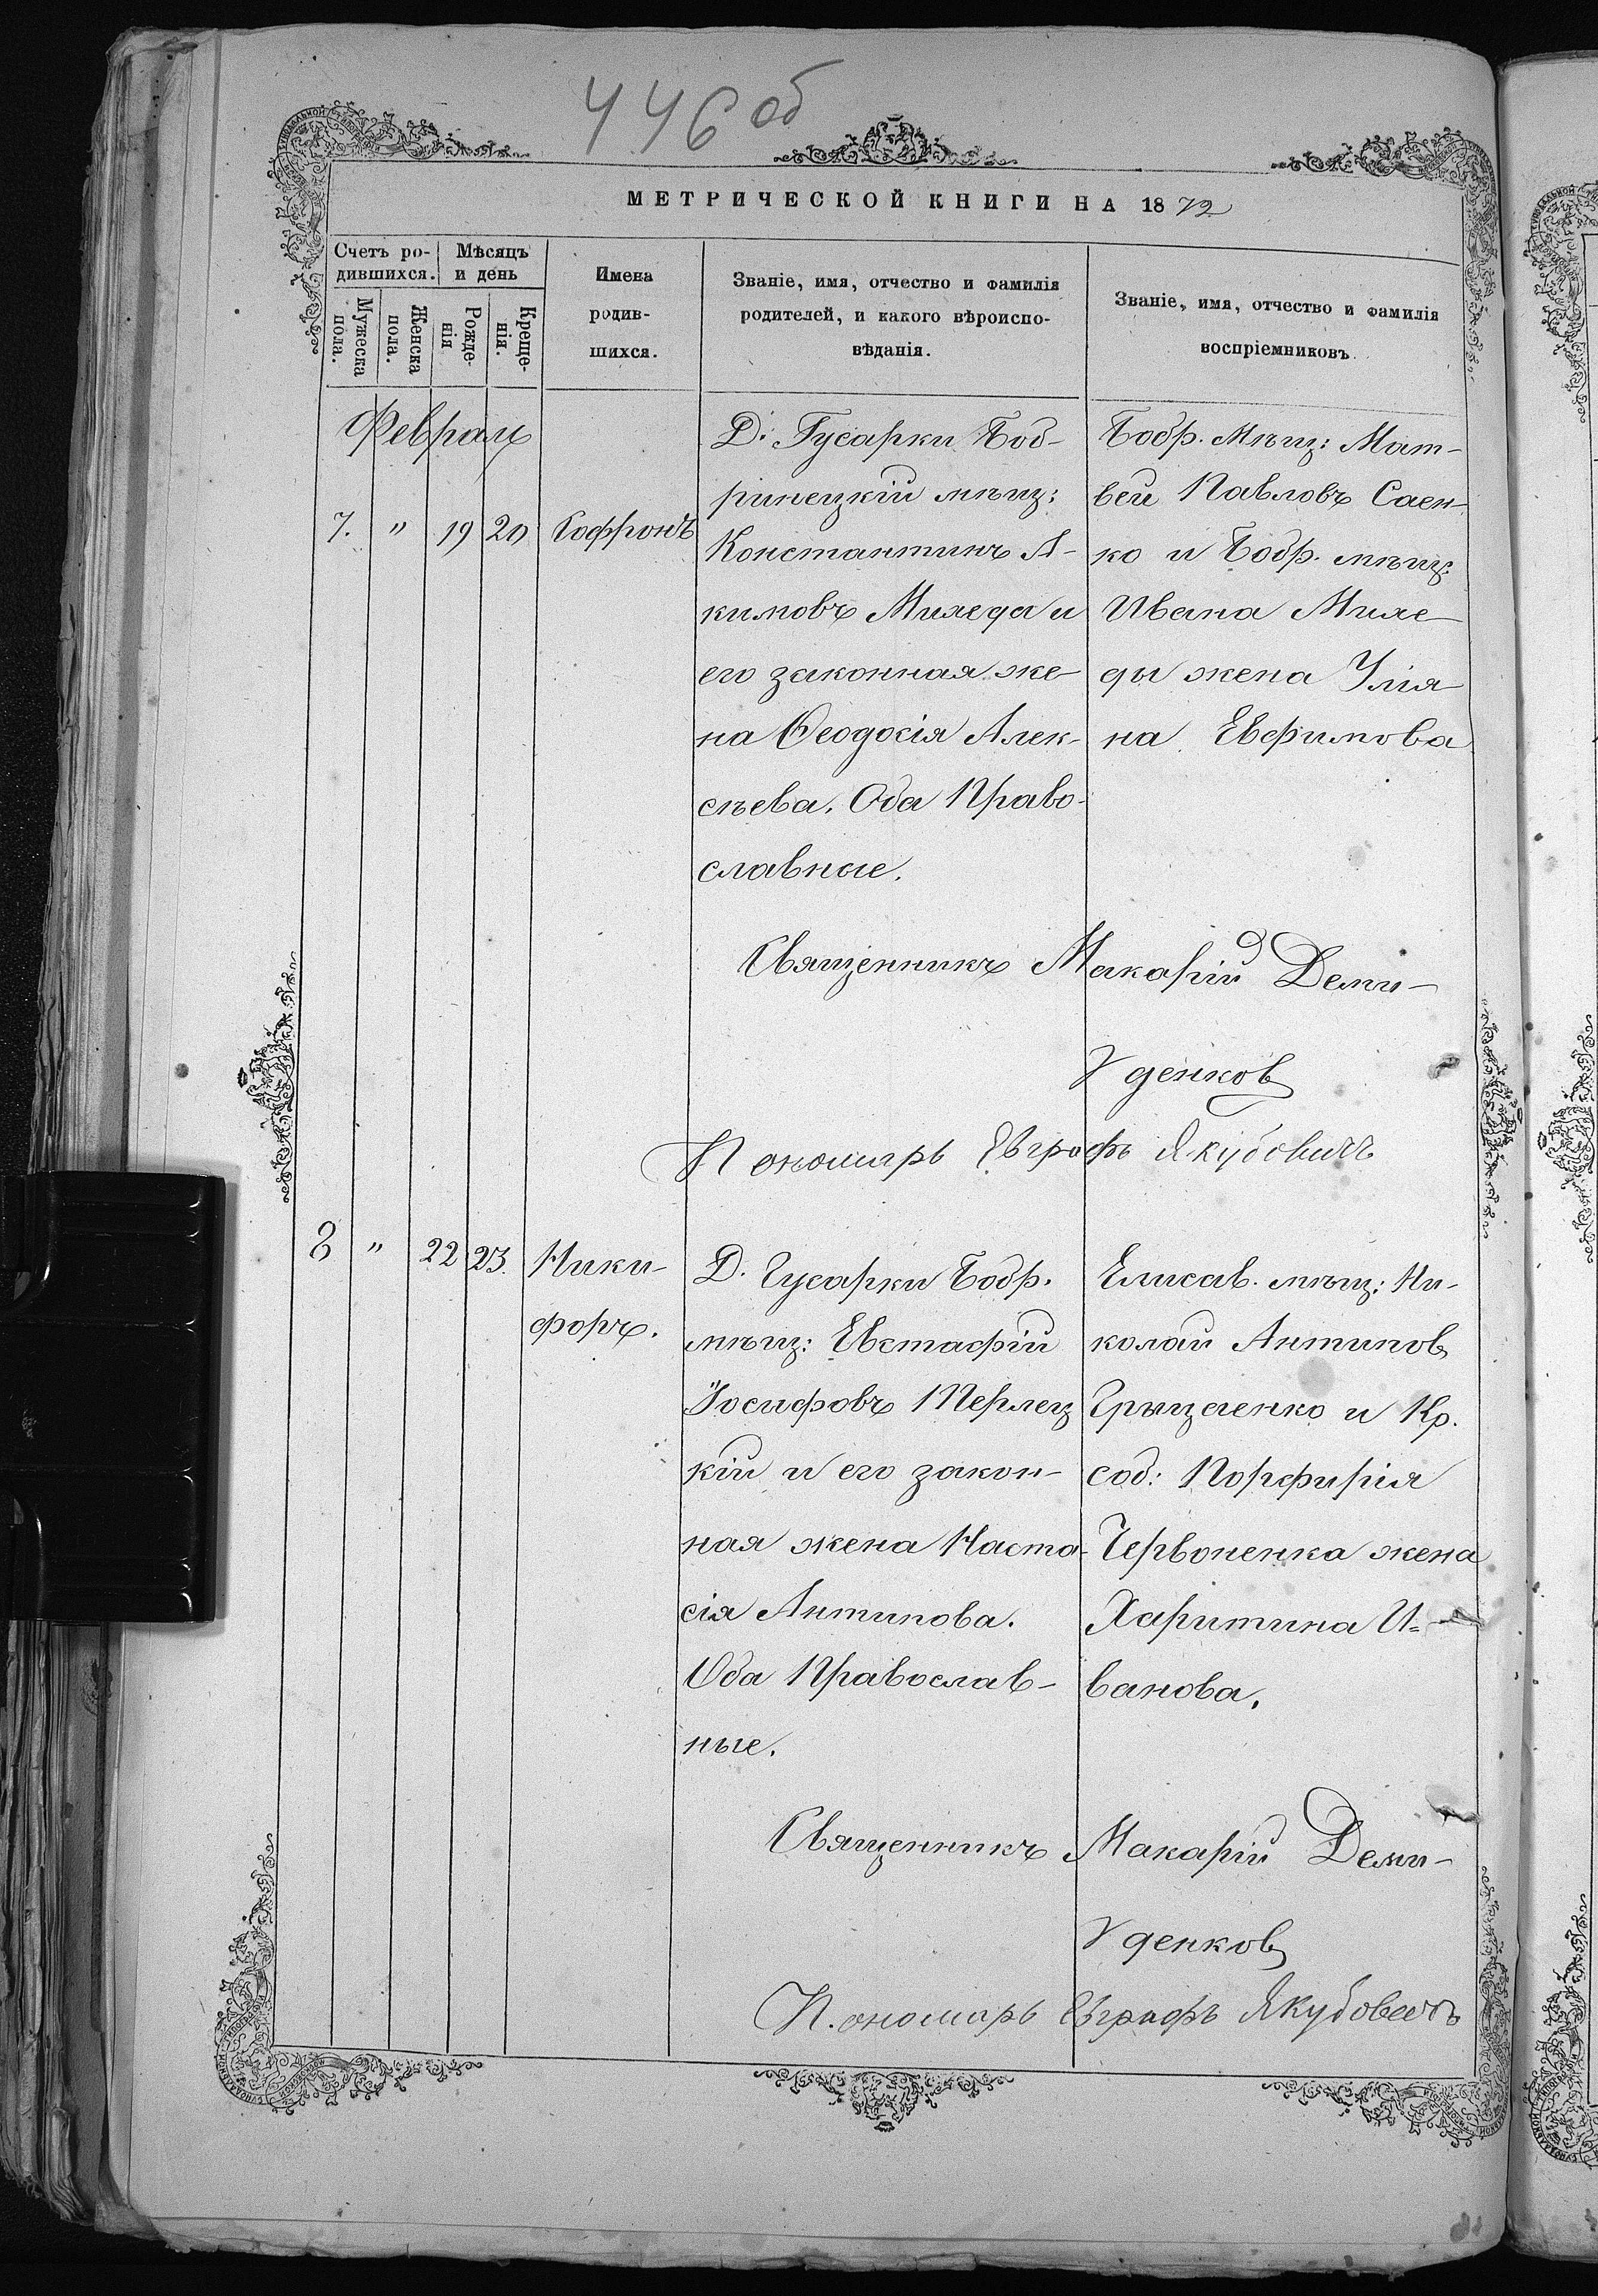 446 об
МЕТРИЧЕСКОЙ КНИГИ НА 1872
Счетъ ро-
дившихся.
Мѣсяцъ
и день
Мужеска
пола.
Женска
пола.
Рожде-
нія
Креще-
нія.
Имена
родив-
шихся.
Званіе, имя, отчество и фамилія
родителей, и какого вѣроиспо-
вѣданія.
Званіе, имя, отчество и фамилія
воспріемниковъ
Февраль
7. " 19 20 Софронъ
Д. Гусарки Боб-
ринецкій мѣщ:
Константинъ А-
кимовъ Миледа и
его законная же-
на Ѳеодосія Алек-
сѣева. Оба Право-
славные.
Бобр. мѣщ: Мат-
вей Павловъ Саен-
ко и Бобр. мѣщ:
Ивана Миле-
ды жена Улія-
на Евфимова
Священникъ Макарій Деми-
денков
Пономарь Евграфъ Якубовичъ
8 " 22 23. Ники-
форъ.
Д. Гусарки Бобр.
мѣщ: Евстафій
Іосифовъ Перлец
кій и его закон-
ная жена Наста-
сія Антипова.
Оба Православ-
ные.
Елисав. мѣщ: Ни-
колай Антипов
Грыщенко и Кр.
соб: Порфирія
Червоненка жена
Харитина И=
ванова.
Священникъ Макарій Деми-
денков
Пономарь Евграфъ Якубовичъ